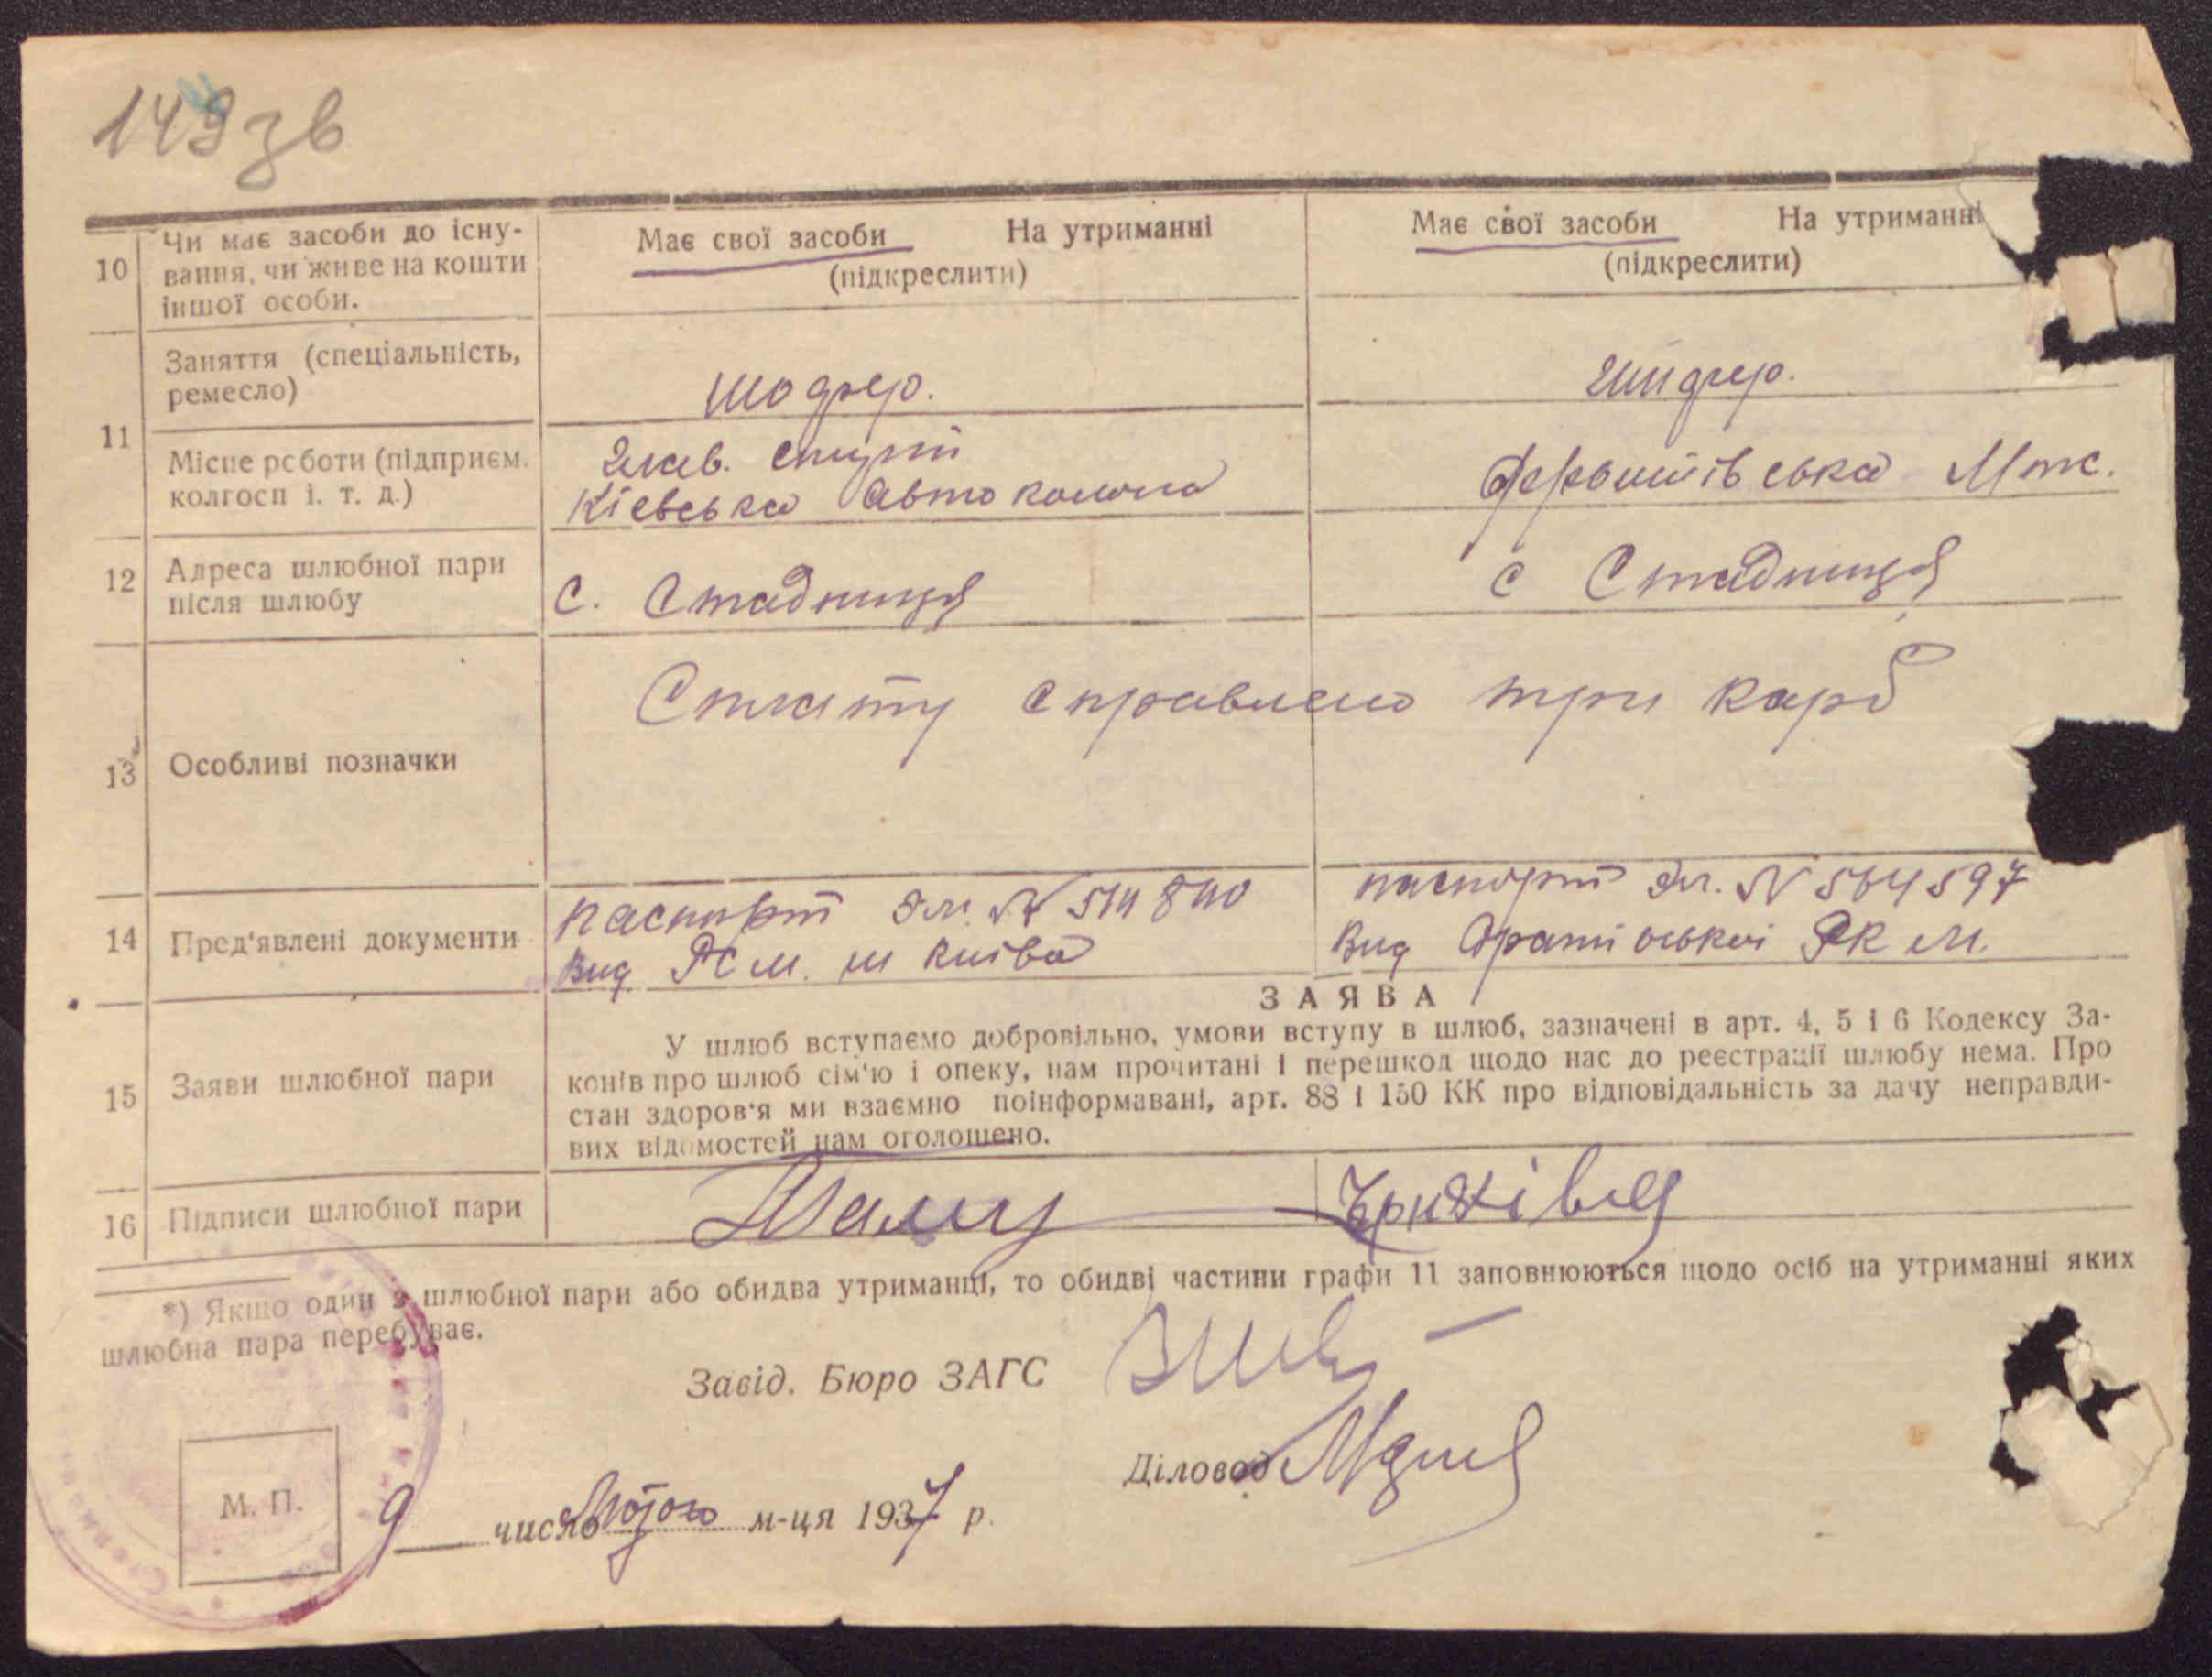 149зв
10 Чи має засоби до існу-
вання, чи живе на кошти
іншої особи.
Має свої засоби На утриманні
(підкреслити)
Має свої засоби На утриманні
(підкреслити)
11 Заняття (спеціальність,
ремесло)
шофер.
шофер.
Місце роботи (підприєм.
колгосп і. т. д.)
Глав. спирт
Кієвська Автоколона
Мтс.
12 Адреса шлюбної пари
після шлюбу
с. Стадниця
с Стадниця
13 Особливі позначки
Сплату справлено три карб
14 Пред'явлені документи
паспорт N 514840
Вид РСМ. м Київа
паспорт N 564597
Вид РК М.
15 Заяви шлюбної пари
ЗАЯВА
У шлюб вступаємо добровільно, умови вступу в шлюб, зазначені в арт. 4, 5 і 6 Кодексу За-
конів про шлюб сім'ю і опеку, нам прочитані і перешкод щодо нас до реєстрації шлюбу нема. Про
стан здоров'я ми взаємно поінформавані, арт. 88 і 150 КК про відповідальність за дачу неправди-
вих відомостей нам оголошено.
16 Підписи шлюбної пари
*) Якщо один з шлюбної пари або обидва утриманці, то обидві частини графи 11 заповнюються щодо осіб на утриманні яких
шлюбна пара перебуває.
Завід. Бюро ЗАГС
Діловод
М. П.
9 число Лютого м-ця 1937 р.